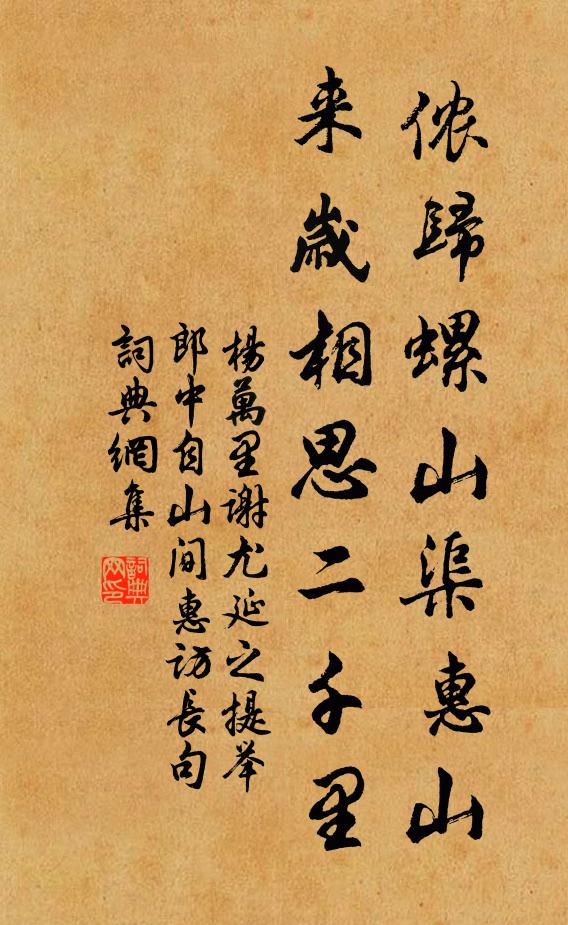 侬歸螺山渠惠山
来歲相思二千里
楊萬里谢尤延之提举
郎中自山间惠访長句
詞典網集
詞典网印